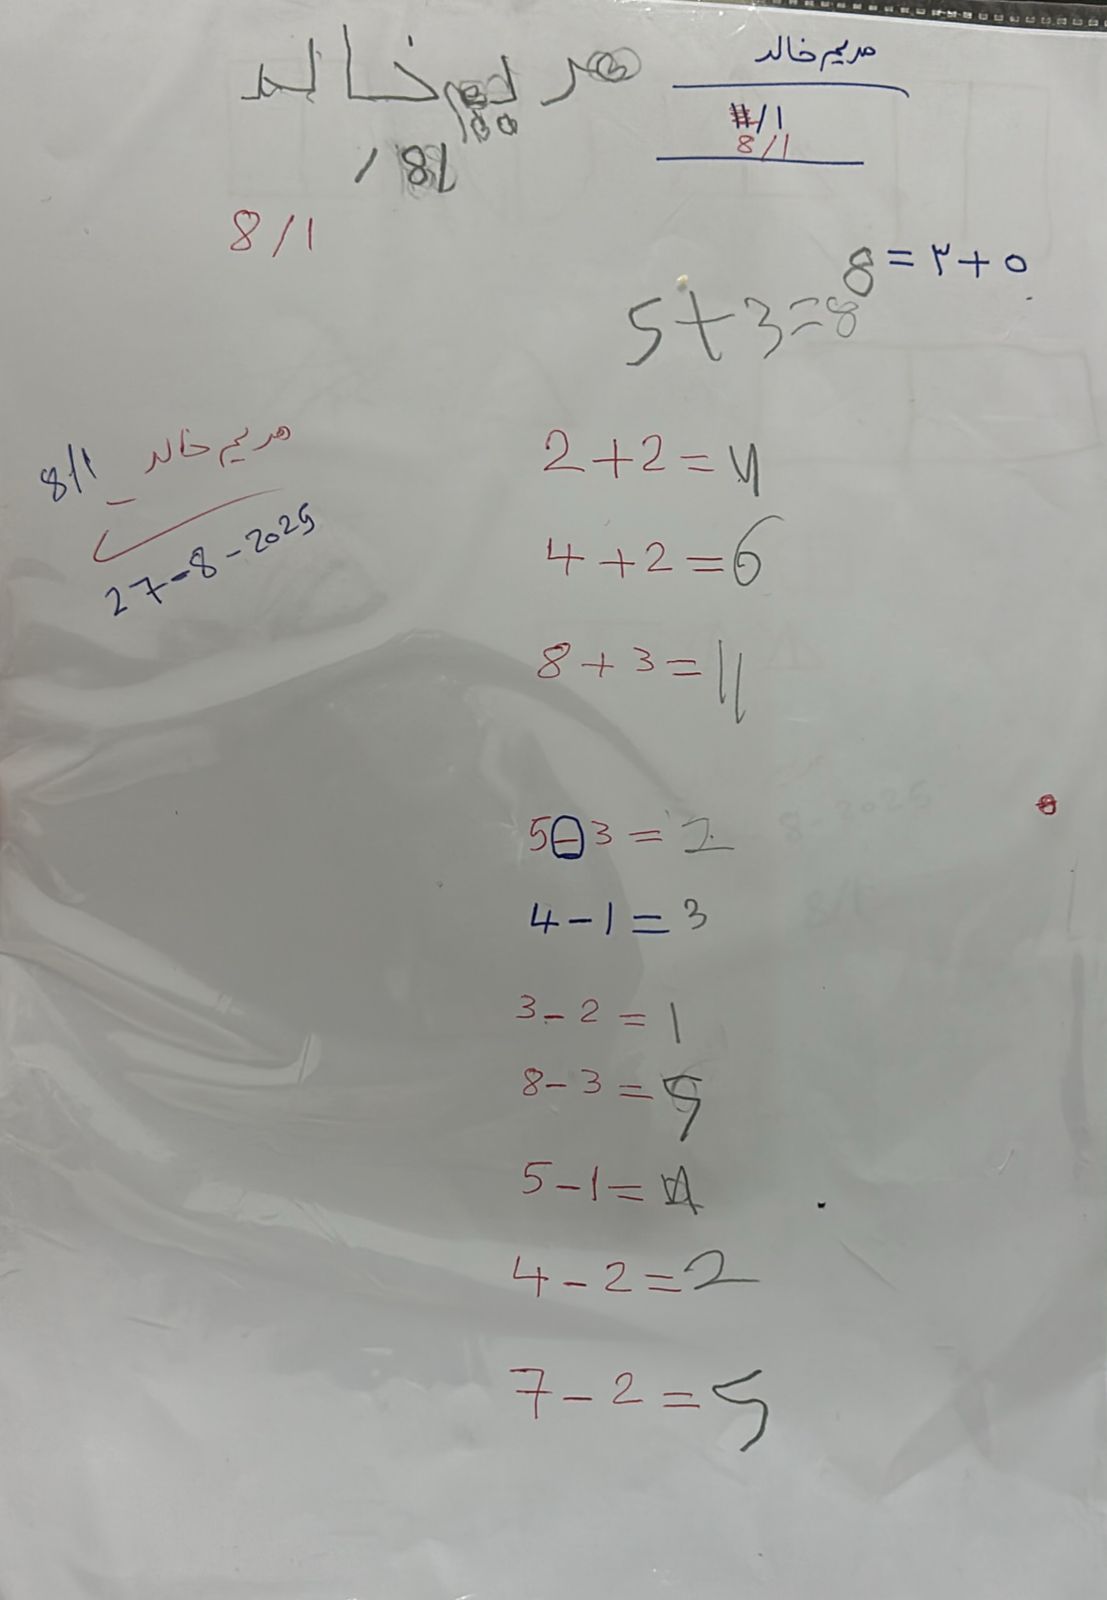 مريم خالد
مريم خالد
#/1
8/1
/ 81
8/1
8 = ٣ + ٥
5+3=8
مريم خالد _ 8/1
27-8-2025
2+2=4
4+2=6
8+3=11
5-3=2
4-1=3
3-2=1
8-3=5
5-1=4
4-2=2
7-2=5